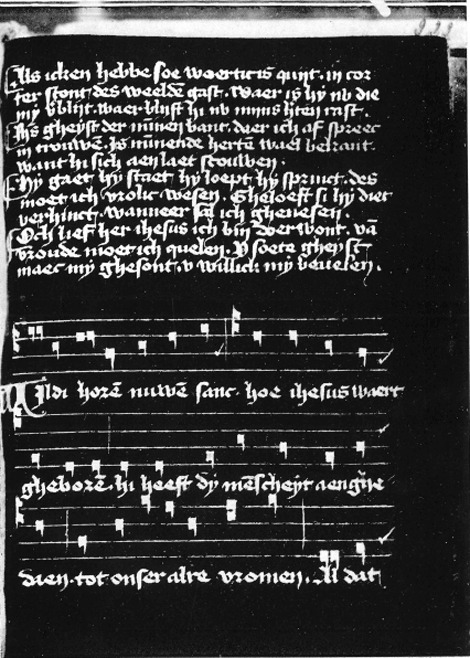 Als icken hebbe soe weertic is quijt. in cor
ter stont. des weeldē gast. waer is hy nv die
my v'blijt. waer blijft hi nv mins h'ten rast.
der minnen bant. daer ich af spreec
in trouwen. is minnende hertē wael bekant.
want hi sich aen laet scouwen.
Hy gaet hy staet hy loept hy sprinct. des
moet ich vrolic wesen. Gheloeft si hy diet
verhinct. wanneer sal ich ghenesen.
Och lief her ihesus ich bin doer wont. vā
vroude moet ich quelen. v soete gheyst
maec my ghesont. v willick my beuelen.
Wildi horē nuwen sanc. hoe ihesus waert
gheborē. hi heeft dy mēscheyt aenghe
daen. tot onser alre vromen. Al dat